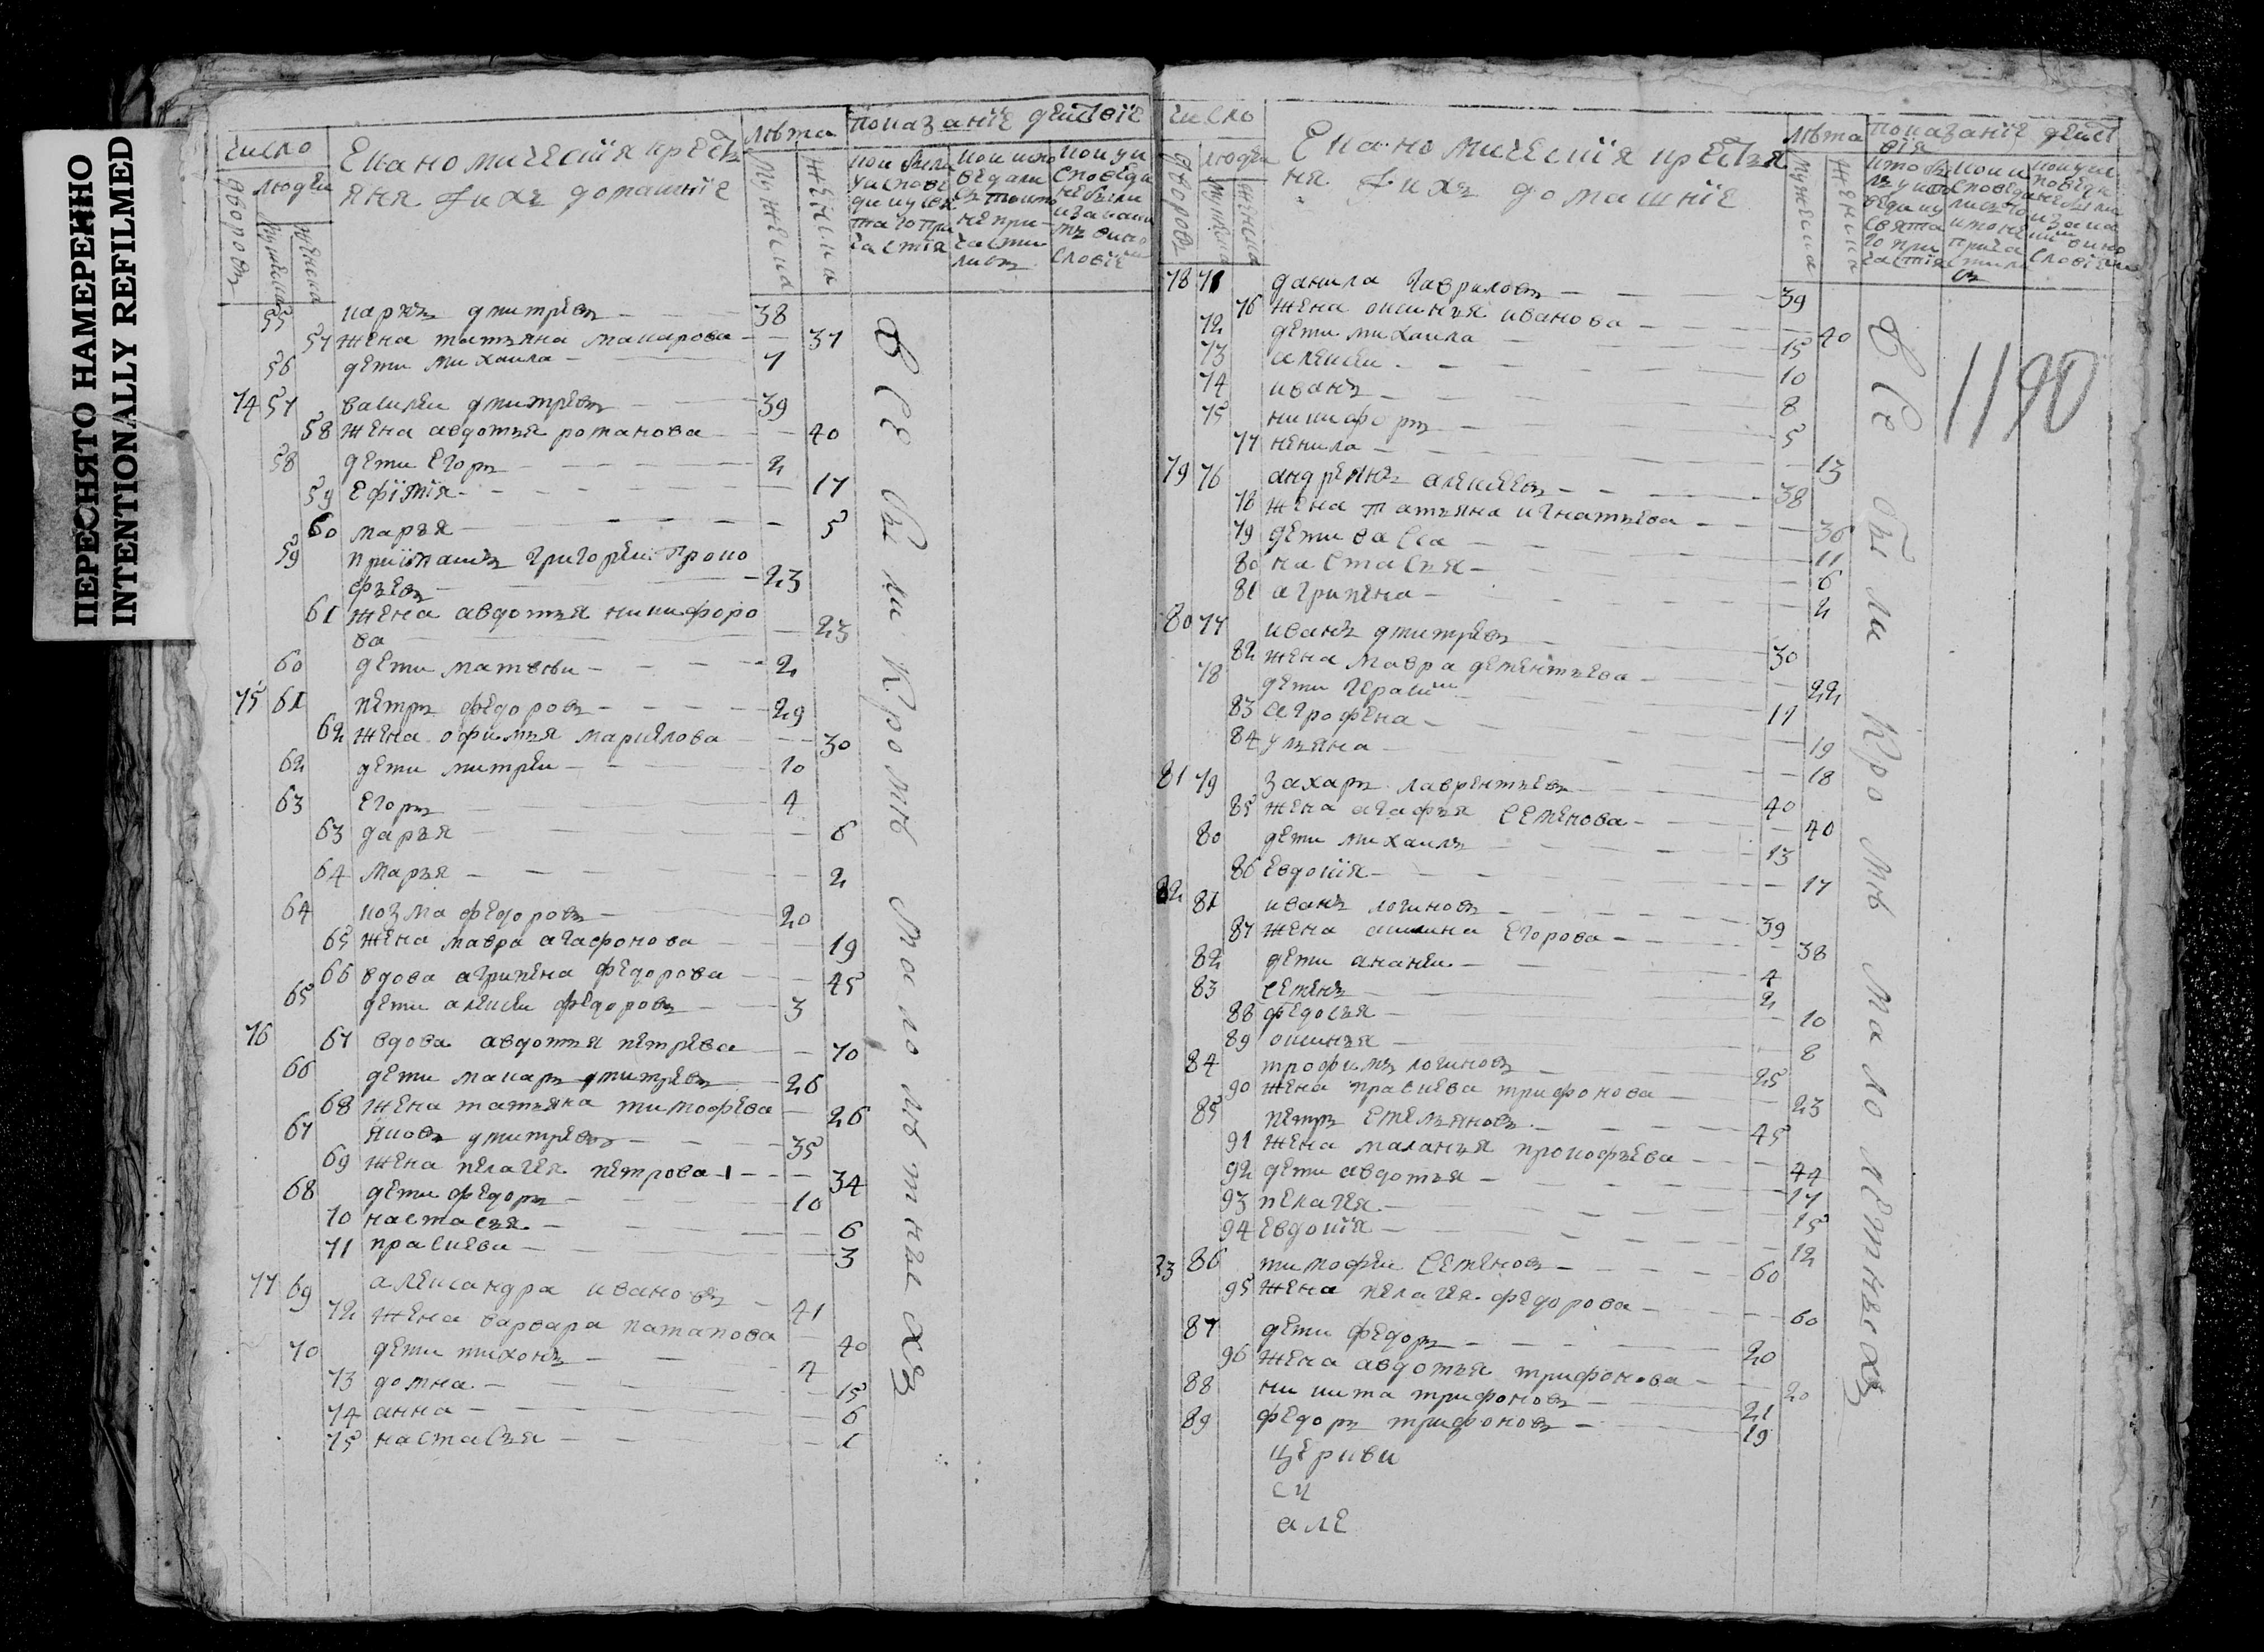 ПЕРЕСНЯТО НАМЕРЕННО
INTENTIONALLY REFILMED
число
дворовъ
людей
мужеска
женска
Економическия кресть
яня и ихъ домашнїе
лѣта
мужеска
женска
показанїе действїе
кои были
у испове
ди и у свя
таго при
частїя
кои испо
ведали
сь токмо
не при-
части
лись
кои у и
споведи
не были
и за каки
мъ вино
словїе
55 карпъ дмитревъ 38
57 жена татьяна макарова 37
56 дети михаила 7
74 57 василеи дмитревъ 39
58 жена авдотья романова 40
58 дети егоръ 2
59 ефїмїя 17
60 марья 5
59 прїимашъ григореи проко
фьевъ 23
61 жена авдотья никифоро
ва 23
60 дети матвѣи 2
75 61 петръ федоровъ 29
62 жена офимья маркелова 30
62 дети митреи 10
63 егоръ 4
63 дарья 6
64 марья 2
64 козма федоровъ 20
65 жена мавра агафонова 19
66 вдова агрипена федорова 45
65 дети алексеи федоровъ 3
76 67 вдова авдотья петрева 70
66 дети макаръ дмитревъ 26
68 жена татьяна тимофева 26
67 яковъ дмитревъ 35
69 жена пелагея петрова 34
68 дети федоръ 10
70 настасья 6
71 праскеви 3
77 69 александра ивановъ 41
72 жена варвара патапова 40
70 дети тихонъ 4
73 домна 15
74 анна 6
75 настасья 1
Все были кромѣ малолѣтныхъ
число
дворовъ
людеи
мужеска
женска
Економическия крестья
ня и ихъ домашнїе
лѣта
мужеска
женска
показанїе дейст
вїя
78 71 данила гавриловъ 39
76 жена оксинья иванова 40
72 дети михаила 15
73 алексеи 10
74 иванъ 8
75 никифоръ 5
77 ненила 13
79 76 андреянъ алексеевъ 38
78 жена татьяна игнатьева 36
79 дети васса 11
80 настасья 6
81 агрипена 2
80 77 иванъ дмитревъ 30
82 жена мавра дементьева 22
78 дети герасим 11
83 агрофена 19
84 ульяна 18
81 79 захаръ лаврентьевъ 40
85 жена агафья семенова 40
80 дети михаилъ 13
86 евдокїя 17
82 81 иванъ логиновъ 39
87 жена акилина егорова 38
82 дети ананеи 4
83 семенъ 2
88 федосья 10
89 оксинья 8
84 трофимъ логиновъ 25
90 жена праскева трифонова 23
85 петръ емельяновъ 45
91 жена маланья прокофьева 44
92 дети авдотья 17
93 пелагея 15
94 евдокїя 12
83 86 тимофеи семеновъ 60
95 жена пелагея федорова 60
87 дети федоръ 20
96 жена авдотья трифонова 20
88 никита трифоновъ 21
89 федоръ трифоновъ 19
церкви
сч
але
Все были кромѣ малолетныхъ
1190